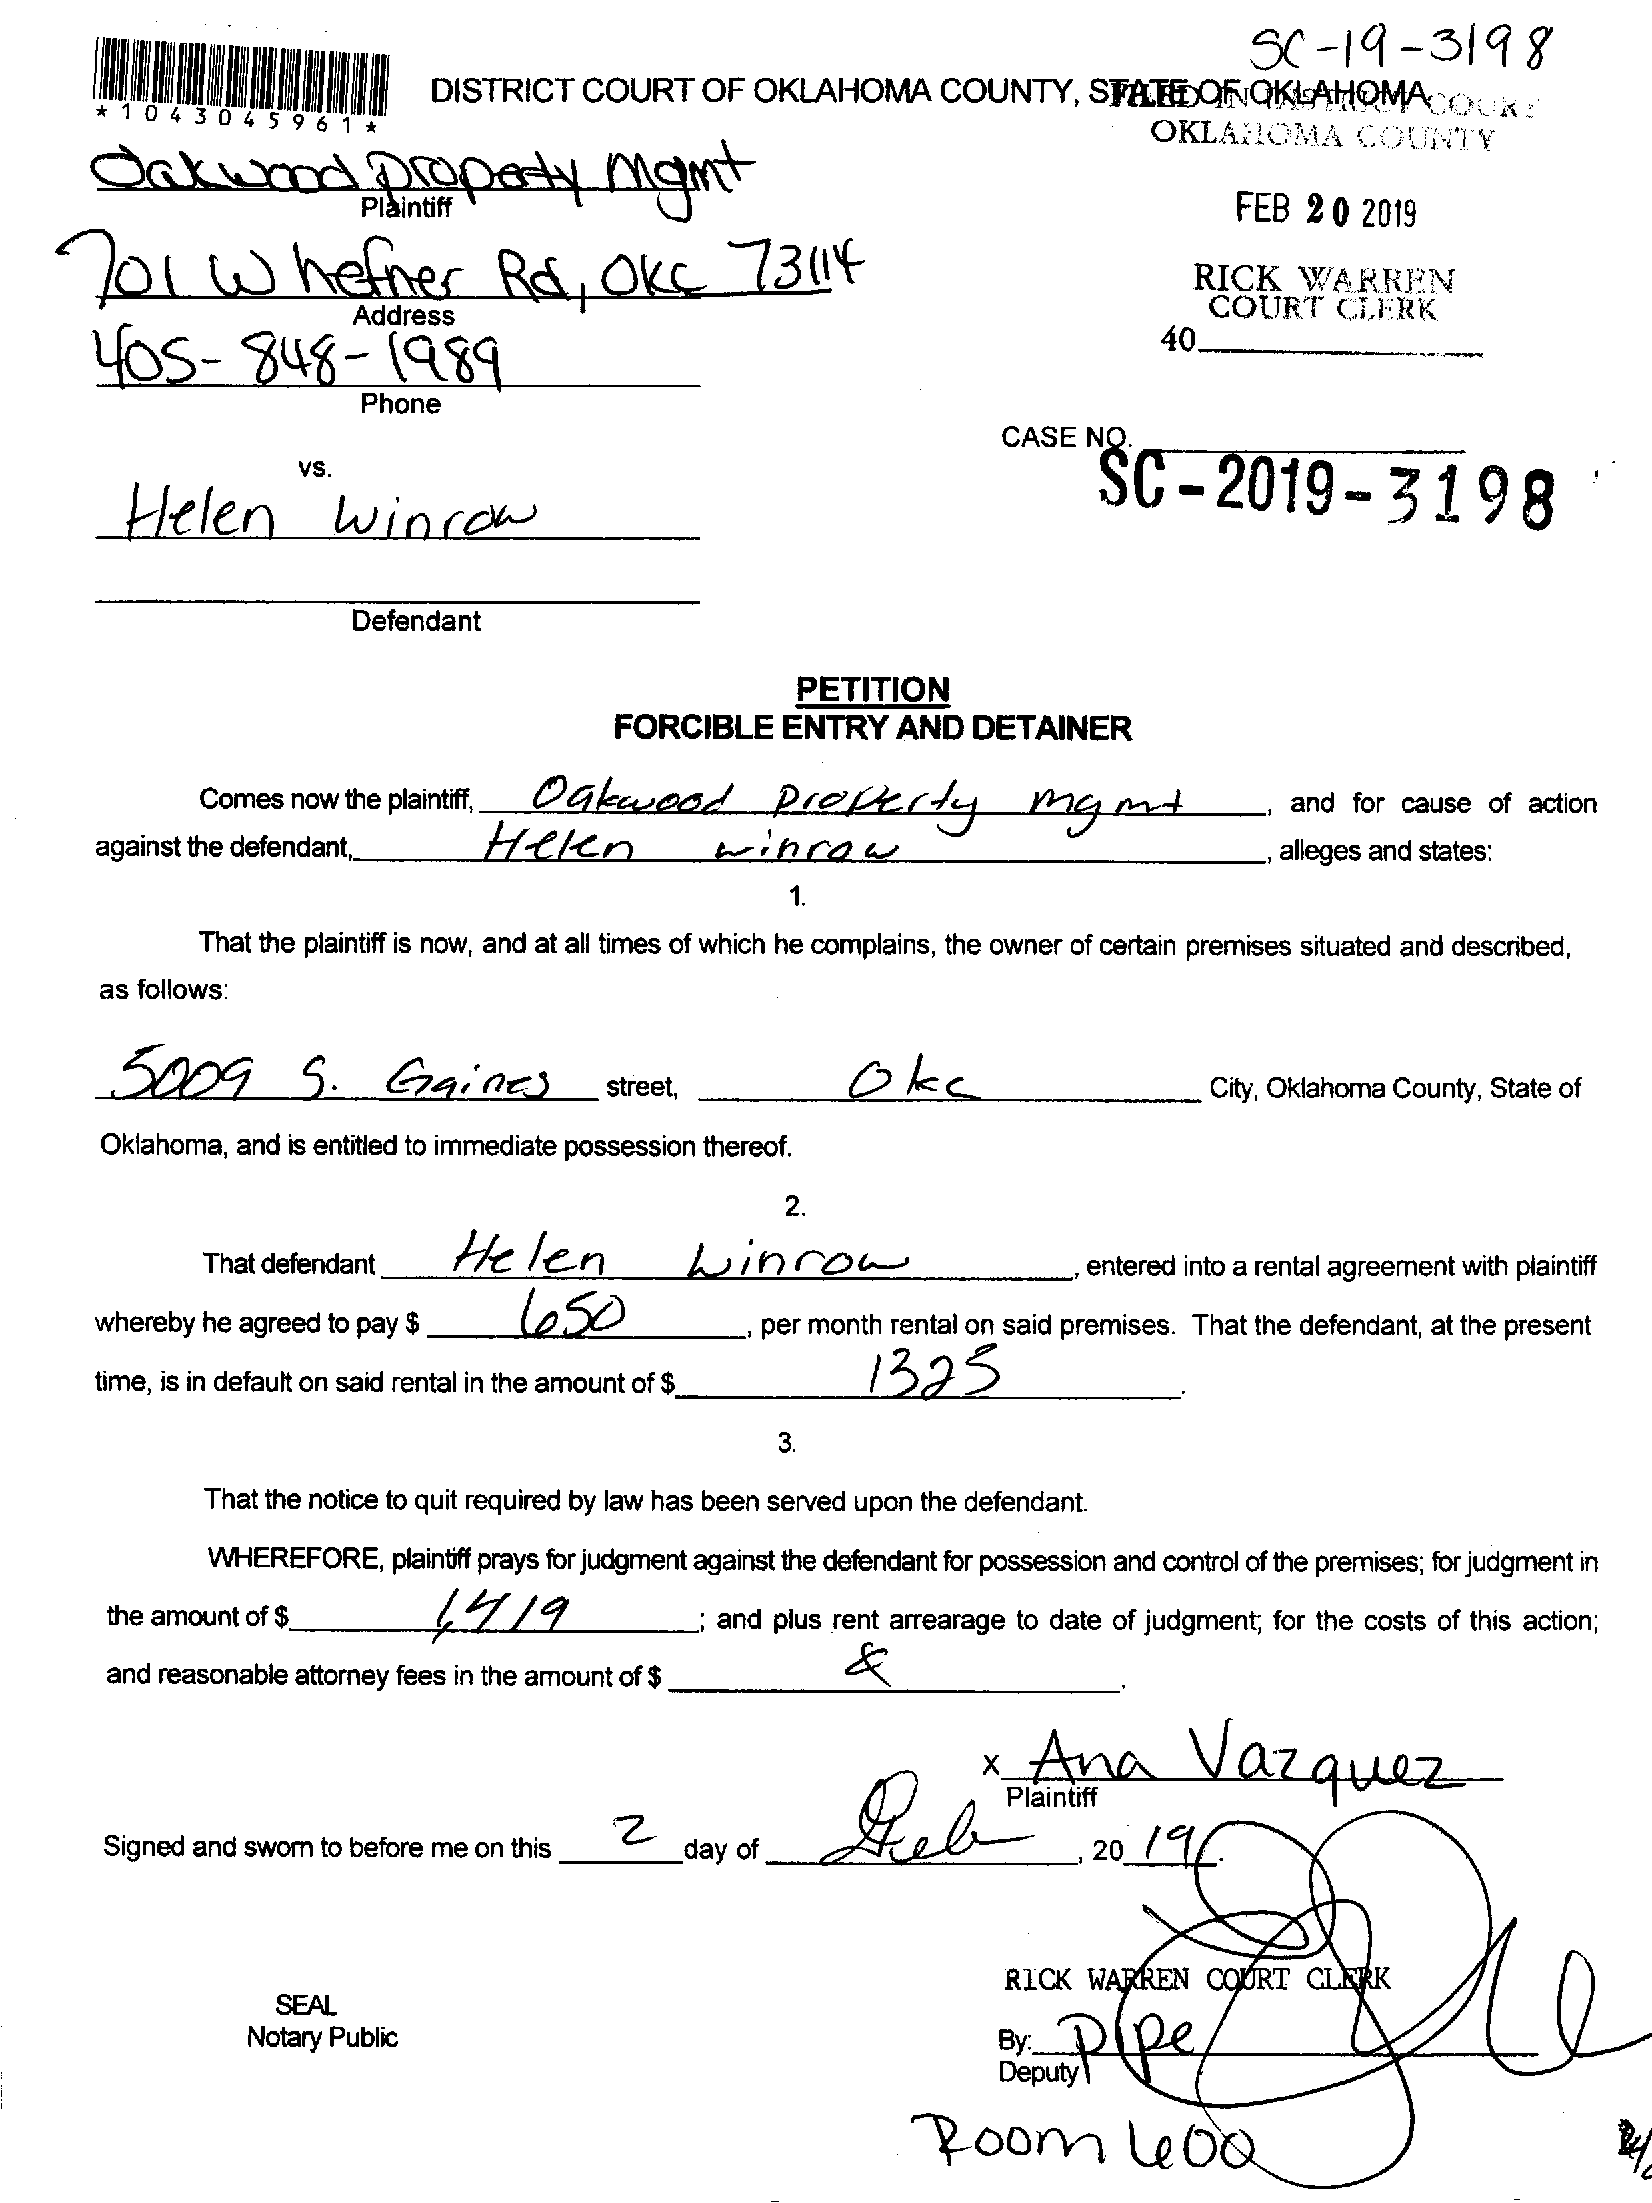 SC-19-3198
*1043045961*
DISTRICT COURT OF OKLAHOMA COUNTY, STATE OF OKLAHOMA
FILED IN DISTRICT COURT
OKLAHOMA COUNTY
Oakwood Property Mgmt
Plaintiff
FEB 20 2019
701 W hefner Rd, OKC 73114
Address
RICK WARREN
COURT CLERK
40
405-848-1989
Phone
CASE NO.
SC-2019-3198
vs.
Helen Winrow
Defendant
PETITION
FORCIBLE ENTRY AND DETAINER
Comes now the plaintiff, Oakwood Property mgmt, and for cause of action
against the defendant, Helen winrow, alleges and states:
1.
That the plaintiff is now, and at all times of which he complains, the owner of certain premises situated and described,
as follows:
5009 S. Gaines street, Okc City, Oklahoma County, State of
Oklahoma, and is entitled to immediate possession thereof.
2.
That defendant Helen Winrow, entered into a rental agreement with plaintiff
whereby he agreed to pay $ 650, per month rental on said premises. That the defendant, at the present
time, is in default on said rental in the amount of $ 1325.
3.
That the notice to quit required by law has been served upon the defendant.
WHEREFORE, plaintiff prays for judgment against the defendant for possession and control of the premises; for judgment in
the amount of $ 1,419; and plus rent arrearage to date of judgment; for the costs of this action;
and reasonable attorney fees in the amount of $ .
x Ana Vazquez
Plaintiff
Signed and sworn to before me on this 2 day of Feb, 20 19.
RICK WARREN COURT CLERK
SEAL
Notary Public
By:
Deputy
Room 600